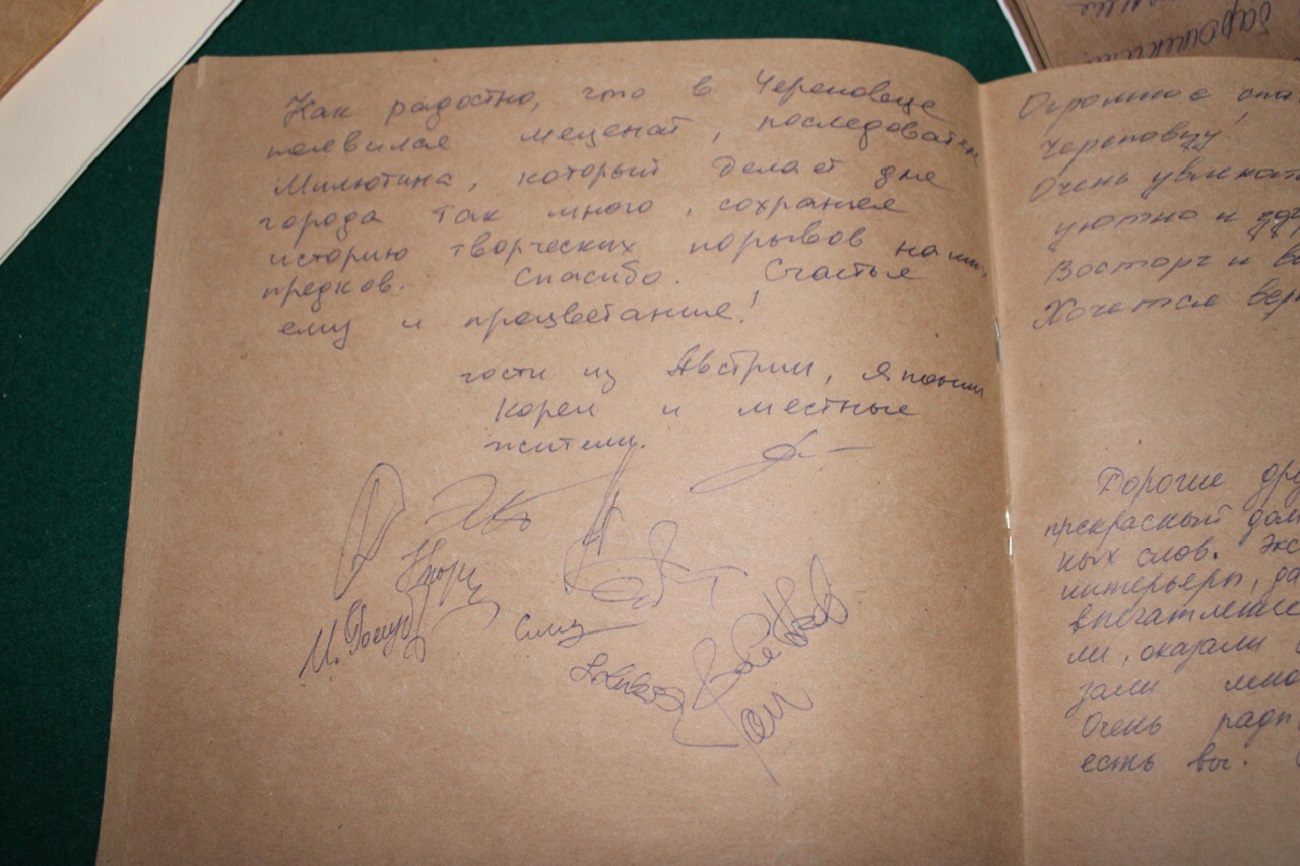 Как радостно, что в Череповце
появился меценат, последовател
Милютина, который делает для
города так много, сохраняя
историю творческих порывов наши
предков. Спасибо. Счастье
ему и процветание!
гости из Австрии, Японии
Кореи и местные
жители.
М. Голуб
Огромное спа
Череповцу!
Очень увлекат
уютно и здо
Восторг и во
Хочется вер
Дорогие дру
прекрасный дом
ных слов. Экс
интерьеры, да
впечатление
ли, оказали
зали мно
Очень рады
есть вы.